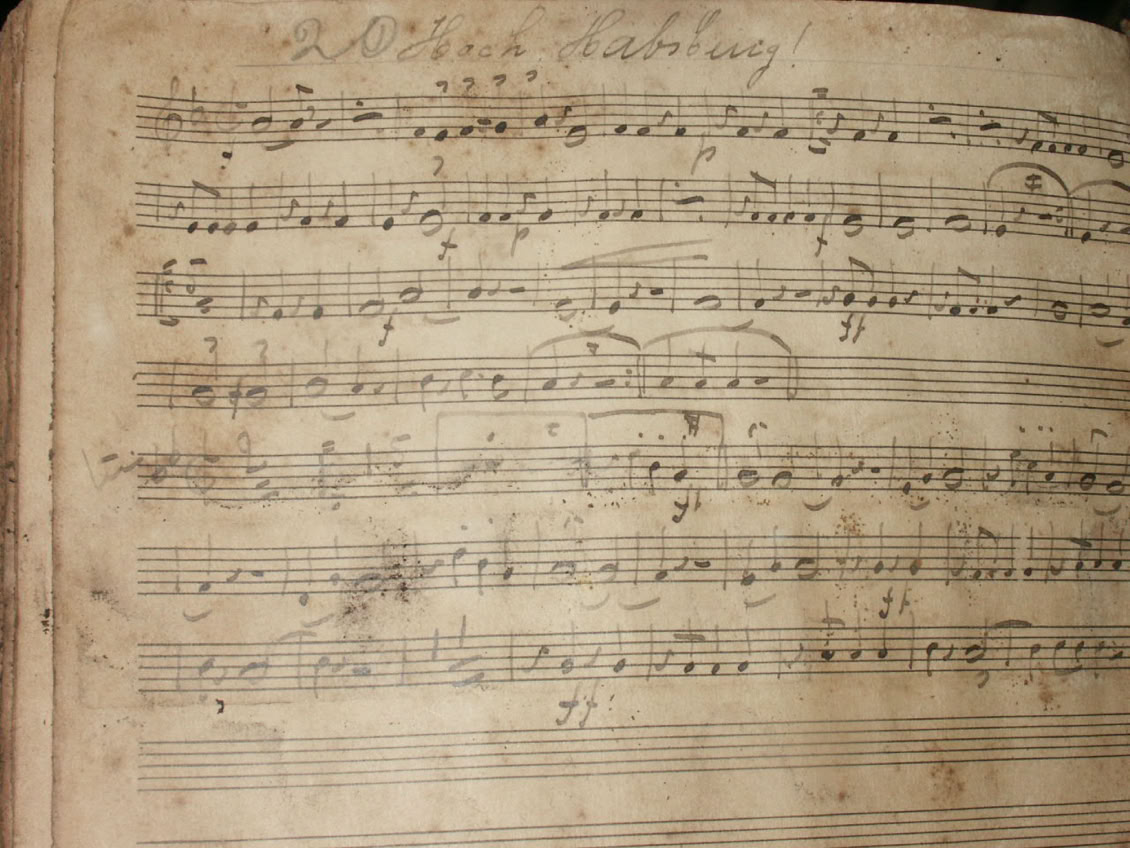 20 Hoch Habsburg!
p
f p f
f ff
ff
ff
ff